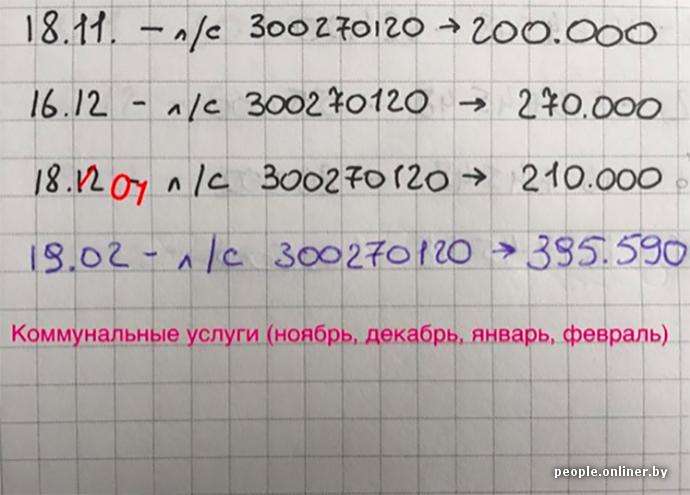 18.11. - л/с 300270120 → 200.000
16.12 - л/с 300270120 → 270.000
18.12 01 л/с 300270120 → 210.000
19.02 - л/с 300270120 → 395.590
Коммунальные услуги (ноябрь, декабрь, январь, февраль)
people.onliner.by